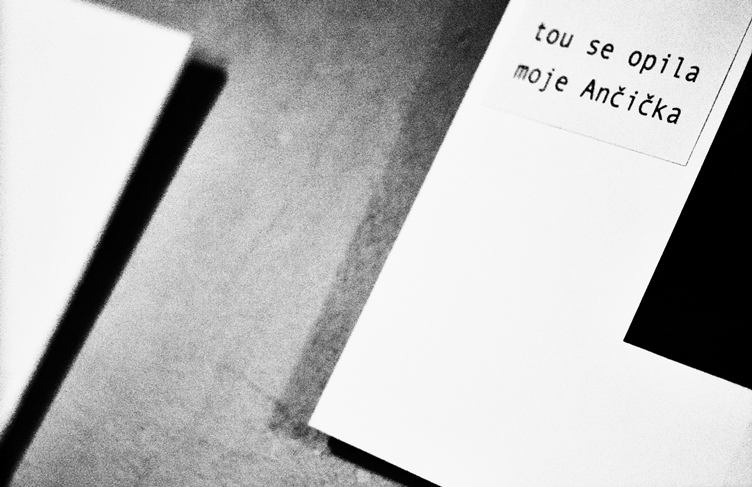 tou se opila
moje Ančička